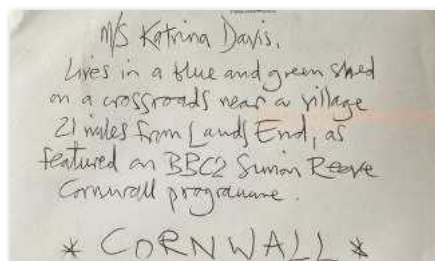 M/S Katrina Davis,
Lives in a blue and green shed
on a crossroads near a village
21 miles from Lands End, as
featured on BBC2 Simon Reeve
Cornwall programme.
* CORNWALL *